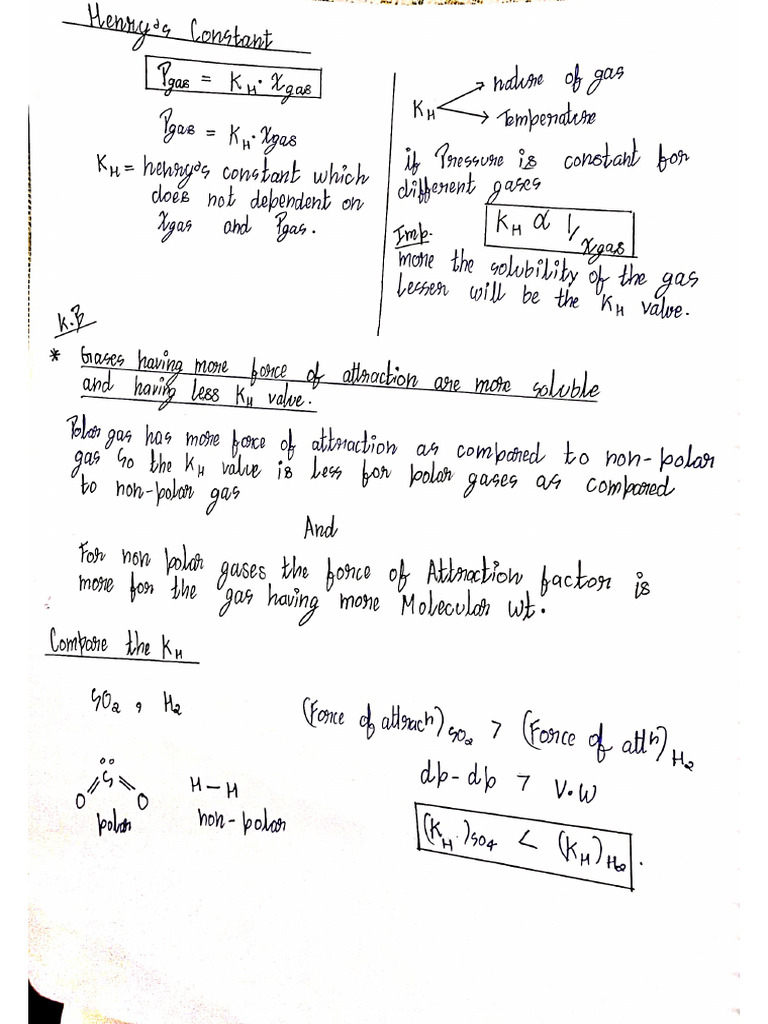 Henry's Constant
Pgas = KH · Xgas
Pgas = KH · Xgas
KH = henry's constant which
does not dependent on
Xgas and Pgas.
KH → nature of gas
→ Temperature
if Pressure is constant for
different gases
KH ∝ 1/Xgas
Imp.
more the solubility of the gas
Lesser will be the KH value.
K.B
* Gases having more force of attraction are more soluble
and having less KH value.
Polar gas has more force of attraction as compared to non-polar
gas so the KH value is less for polar gases as compared
to non-polar gas
And
For non polar gases the force of Attraction factor is
more for the gas having more Molecular wt.
Compare the KH
SO2 , H2
(Force of attracⁿ)SO2 > (Force of attⁿ)H2
S
O O
polar
H-H
non-polar
dp-dp > V.W
(KH)SO4 < (KH)H2.